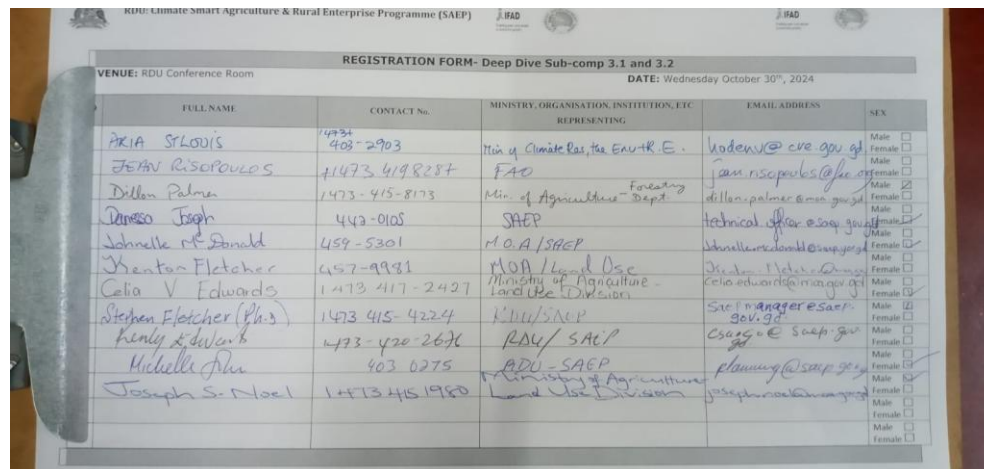 RDU: Climate Smart Agriculture & Rural Enterprise Programme (SAEP)
JLIFAD
JLIFAD
REGISTRATION FORM- Deep Dive Sub-comp 3.1 and 3.2
VENUE: RDU Conference Room DATE: Wednesday October 30th, 2024
FULL NAME CONTACT No. MINISTRY, ORGANISATION, INSTITUTION, ETC REPRESENTING EMAIL ADDRESS SEX
ARIA ST LOUIS 14734 403-2903 Min of Climate Res, the Env + R.E. hodenv@ cve.gov.gd Male Female
JEAN RISOPOULOS +1473 4198287 FAO jean.risopoulos@fao.org Female
Dillon Palmer 1473-415-8173 Min. of Agriculture - Forestry Dept. dillon.palmer@moa.gov.gd Male Female
Joseph 442-0105 SAEP technical officer@saep.gov Female
Johnelle McDonald 459-5301 M.O.A/SAEP Male Female
Kenton Fletcher 457-9981 MOA / Land Use Male Female
Celia V Edwards 1473 417-2427 Ministry of Agriculture - Land Use Division celia.edwards@moa.gov.gd Male Female
Stephen Fletcher (Ph.D) 1473 415-4224 RDU/SAEP saepmanager@saep.gov.gd Male Female
Kenly Edwards 1473-420-2676 RDU/ SAEP saep.gov Male Female
Michelle John 403 0275 RDU-SAEP planning@saep.gov Male Female
Joseph S. Noel 1473 415 1980 Ministry of Agriculture Land Use Division Male Female
Male Female
Male Female